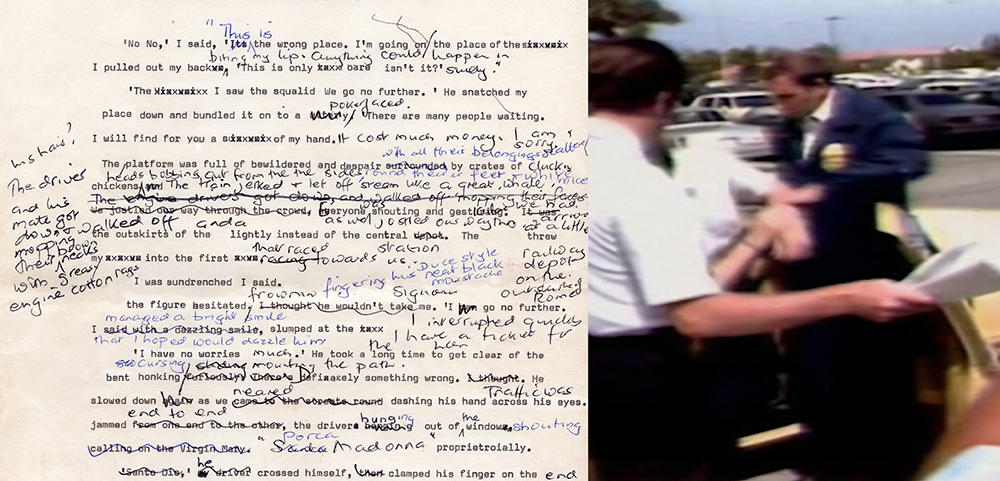 "This is
'No No,' I said, 'Its the wrong place. I'm going on the place of the sixxwxix
biting my lip. Anything could happen in
I pulled out my backwx, 'This is only xxxx oare isn't it?' surely."
'The Wixxwxixx I saw the squalid We go no further. ' He snatched my
pokerfaced.
place down and bundled it on to a 'There are many people waiting.
I will find for you a sixxwxix of my hand. It cost much money. I am
sorry.
with all their belongings scattered
The platform was full of bewildered and despair surrounded by crates of clucking
heads bobbing out from the the sides round their feet & white mice
chickens and The train jerked & let off steam like a great whale.
The engine drivers got down, and walked off mopping their faces
was we had
We jostled our way through the crowd, Everyone shouting and gesting. It was
as well jostled our way to at a little
the outskirts of the lightly instead of the central depot. The threw
that raced station
my xxwxxx into the first xxw racing towards us.
railway
depot
on the
outskirts of
Rome
The driver
and his
mate got
down &
walked off and a
mopping
their
with greasy
engine cotton rags
I was sundrenched I said.
fingering his neat black
Duce style
moustache
frowning Signora
the figure hesitated, I thought he wouldn't take me. 'I go no further.
managed a bright smile
I interrupted quickly
I said with a dazzling smile, slumped at the xxx
I have a ticket for
that I hoped would dazzle him the
'I have no worries much.' He took a long time to get clear of the
cursing mounting the path.
bent honking furiously. There's defixaxely something wrong. I thought. He
neared Traffic was
slowed down as we came to the streets round dashing his hand across his eyes.
end to end hanging the
jammed from one end to the other, the drivers out of windows, shouting
"Porca
Madonna"
calling on the Virgin Mary. proprietroially.
he
'Santo Dio,' driver crossed himself, then clamped his finger on the end